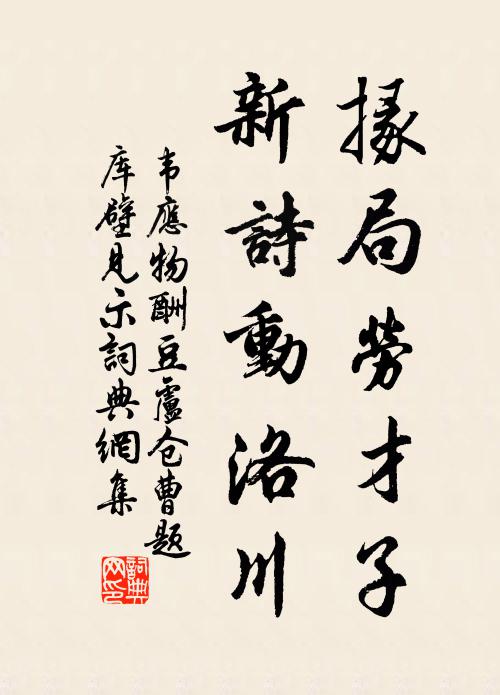 掾局勞才子
新詩動洛川
韦應物酬豆盧仓曹題
库壁見示詞典網集
詞典
网印